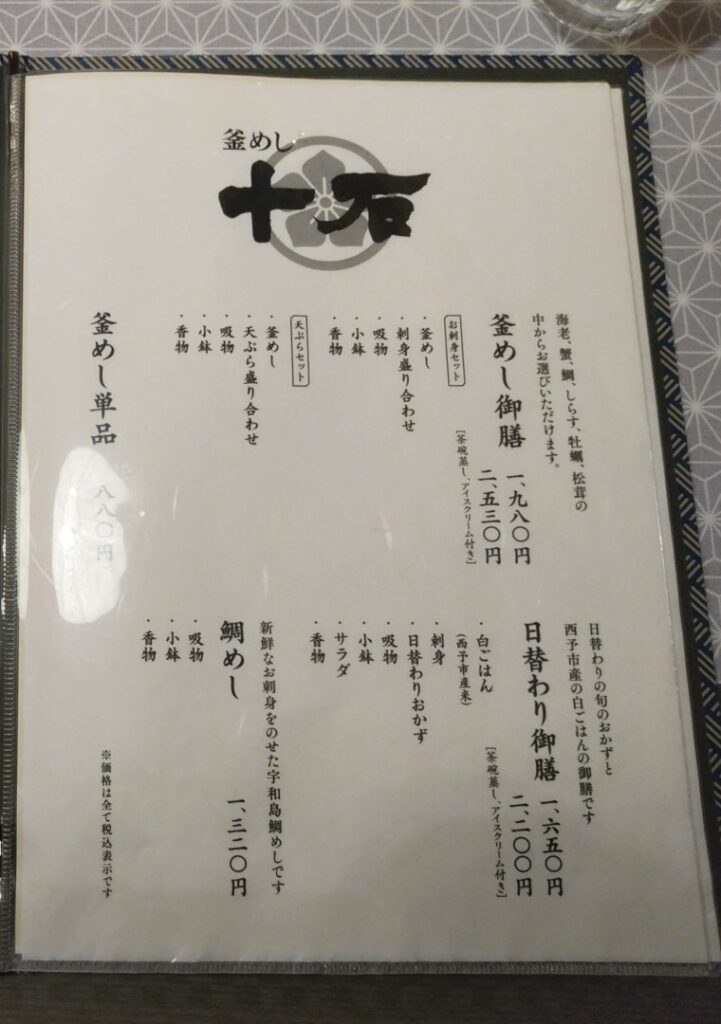 釜めし
十石
海老、蟹、鯛、しらす、牡蠣、松茸の
中からお選びいただけます。
釜めし御膳
一、九八〇円
二、五三〇円
[茶碗蒸し、アイスクリーム付き]
お刺身セット
・釜めし
・刺身盛り合わせ
・吸物
・小鉢
・香物
天ぷらセット
・釜めし
・天ぷら盛り合わせ
・吸物
・小鉢
・香物
釜めし単品 八八〇円
日替わりの旬のおかずと
西予市産の白ごはんの御膳です
日替わり御膳
一、六五〇円
二、二〇〇円
[茶碗蒸し、アイスクリーム付き]
・白ごはん
(西予市産米)
・刺身
・日替わりおかず
・吸物
・小鉢
・サラダ
・香物
新鮮なお刺身をのせた宇和島鯛めしです
鯛めし 一、三二〇円
・吸物
・小鉢
・香物
※価格は全て税込表示です